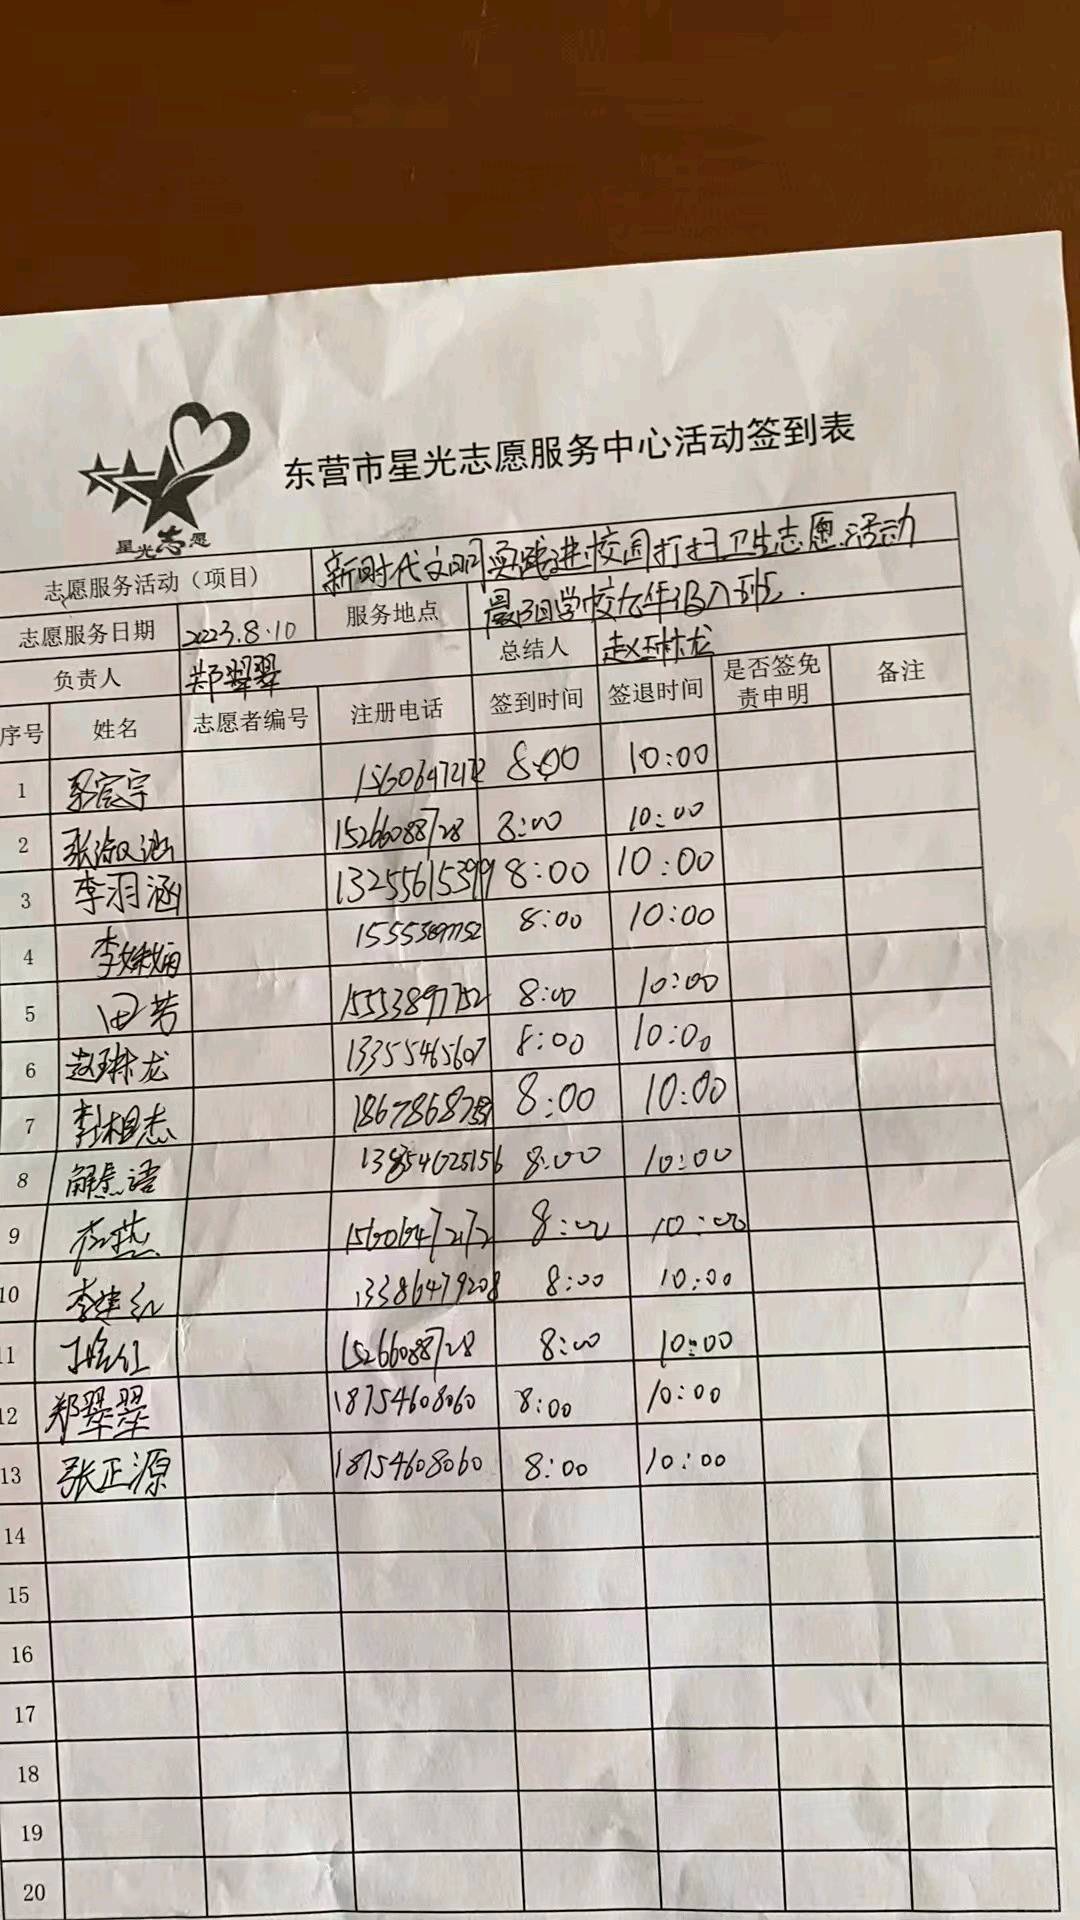 东营市星光志愿服务中心活动签到表
星光志愿
志愿服务活动（项目） 新时代文明实践进校园打扫卫生志愿活动
志愿服务日期 2023.8.10 服务地点 晨阳学校七年级八班.
负责人 郑翠翠 总结人 赵琳龙
序号 姓名 志愿者编号 注册电话 签到时间 签退时间 是否签免责申明 备注
1 15606472172 8:00 10:00
2 张淑涵 15266088728 8:00 10:00
3 李羽涵 13255615399 8:00 10:00
4 15553897752 8:00 10:00
5 田芳 15553897752 8:00 10:00
6 赵琳龙 13355465607 8:00 10:00
7 8:00 10:00
8 13854625156 8:00 10:00
9 15606472172 8:00 10:00
10 李建红 13386479208 8:00 10:00
11 15266088728 8:00 10:00
12 郑翠翠 18754608060 8:00 10:00
13 张正源 18754608060 8:00 10:00
14
15
16
17
18
19
20